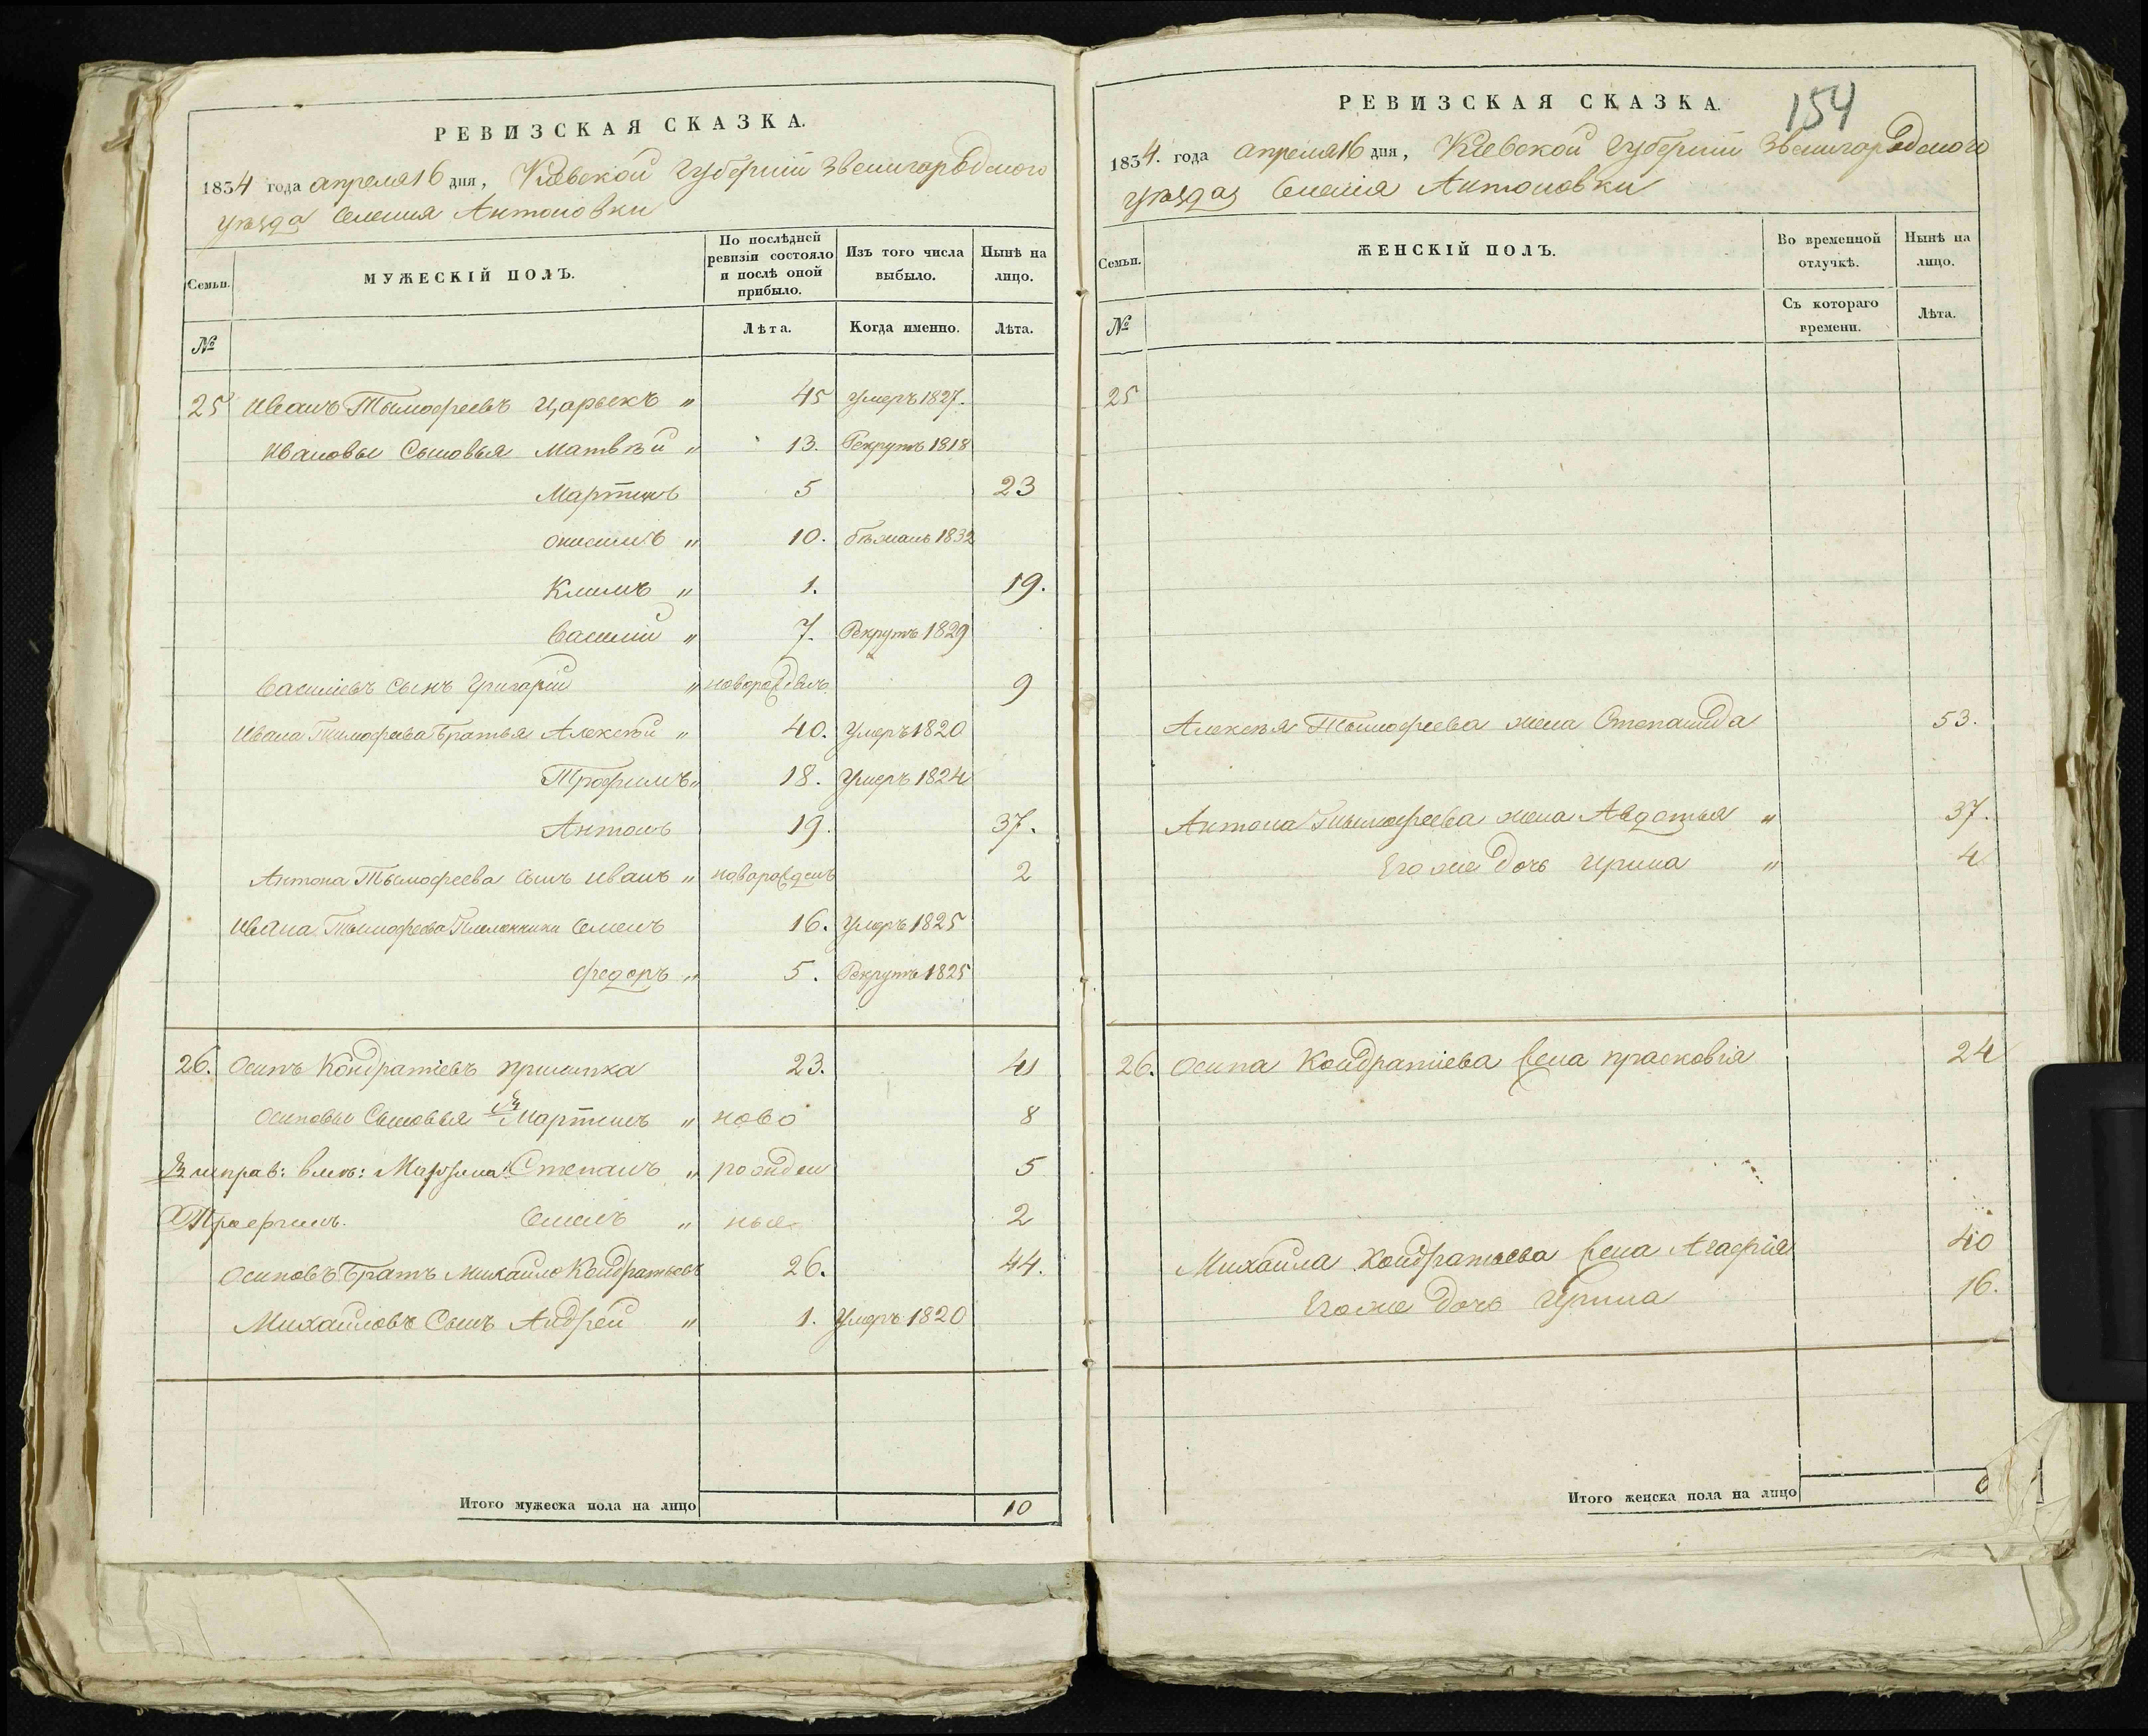 РЕВИЗСКАЯ СКАЗКА.
1834 года апреля 16 дня, Кіевской Губерніи Звенигародского
уезда Селения Антоновки
Семьи.
МУЖЕСКІЙ ПОЛЪ.
По послѣдней ревизіи состояло и послѣ оной прибыло.
Изъ того числа выбыло.
Нынѣ на лицо.
№
Лѣта.
Когда именно.
Лѣта.
25 Иванъ Тымофеевъ Царыкъ " 45 умеръ 1827.
Ивановы Сыновья Матвѣй " 13. Рекрутъ 1818
Мартинъ 5 23
Онисимъ " 10. бѣжалъ 1832
Климъ " 1. 19.
Василий " 7. Рекрутъ 1829
Василіевъ сынъ Григорій " новорожденъ 9
Ивана Тимофеева Братья Алексѣй " 40. Умеръ 1820
Трофимъ " 18. Умеръ 1824
Антонъ 19. 37.
Антона Тымофеева сынъ Иванъ " новарожденъ 2
Ивана Тымофеева Племянники Семенъ 16. Умеръ 1825
Федоръ " 5. Рекрутъ 1825
26. Осипъ Кондратіевъ 23. 41
Осиповы Сыновья Мартинъ " ново 8
исправ: вмѣ: Мартина Степанъ " рожден 5
Трофимъ. Семенъ " ные 2
Осиповъ Братъ Михайло Кондратьевъ 26. 44.
Михайловъ Сынъ Андрей " 1. Умеръ 1820
Итого мужеска пола на лицо 10
РЕВИЗСКАЯ СКАЗКА.
154
1834. года апреля 16 дня, Кіевской Губерніи Звенигародского
уезда Селенія Антоновки
Семьи.
ЖЕНСКІЙ ПОЛЪ.
Во временной отлучкѣ.
Нынѣ на лицо.
№
Съ котораго времени.
Лѣта.
25
Алексѣя Тымофеева жена Степанида 53.
Антона Тымофеева жена Авдотья " 37.
Его же дочь Ирина " 4
26. Осипа Кондратіева жена Прасковія 24
Михайла Кондратьева жена Агафія 40
Его же дочь Ирина 16.
Итого женска пола на лицо 6